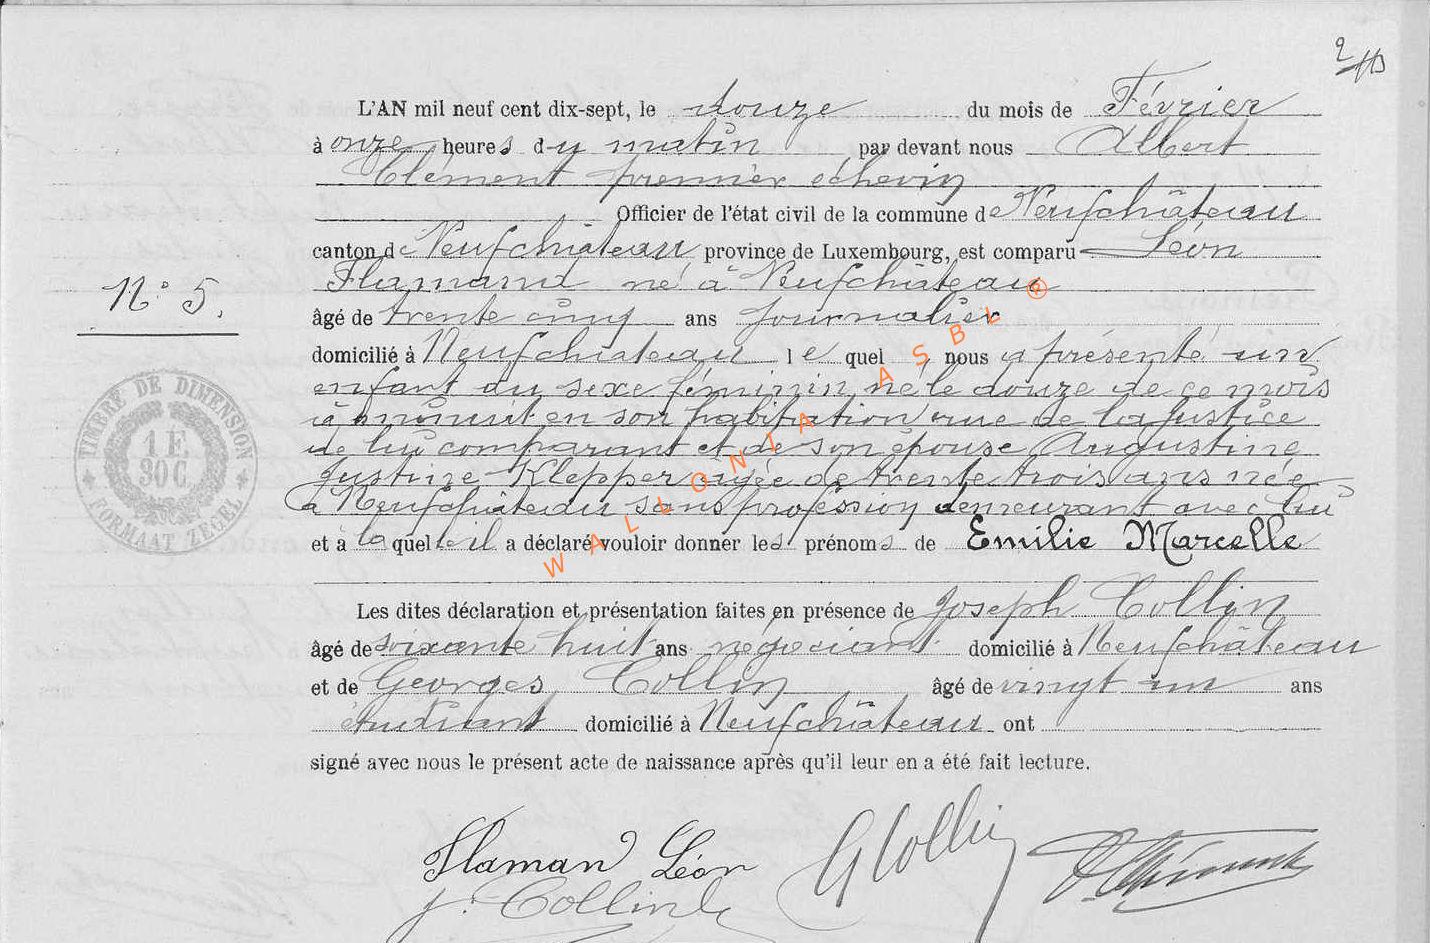 2
L'AN mil neuf cent dix-sept, le douze du mois de Février
à onze heures du matin par devant nous Albert
Clément premier échevin
Officier de l'état civil de la commune de Neufchâteau
canton de Neufchâteau province de Luxembourg, est comparu Léon
Flamand né à Neufchâteau
N° 5.
âgé de trente cinq ans journalier
domicilié à Neufchateau lequel nous a présenté un
enfant du sexe féminin né le douze de ce mois
à minuit en son habitation rue de la Justice
de lui comparant et de son épouse Augustine
Justine Klepper âgée de trente trois ans née
à Neufchâteau sans profession demeurant avec lui
et à laquelle il a déclaré vouloir donner les prénoms de Emilie Marcelle
Les dites déclaration et présentation faites en présence de Joseph Collin
âgé de soixante huit ans négociant domicilié à Neufchâteau
et de Georges Collin âgé de vingt un ans
étudiant domicilié à Neufchâteau ont
signé avec nous le présent acte de naissance après qu'il leur en a été fait lecture.
TIMBRE DE DIMENSION
1 F.
30 C
FORMAAT ZEGEL
WALLONIA ASBL ®
Flamand Léon
G Collin
J. Collin